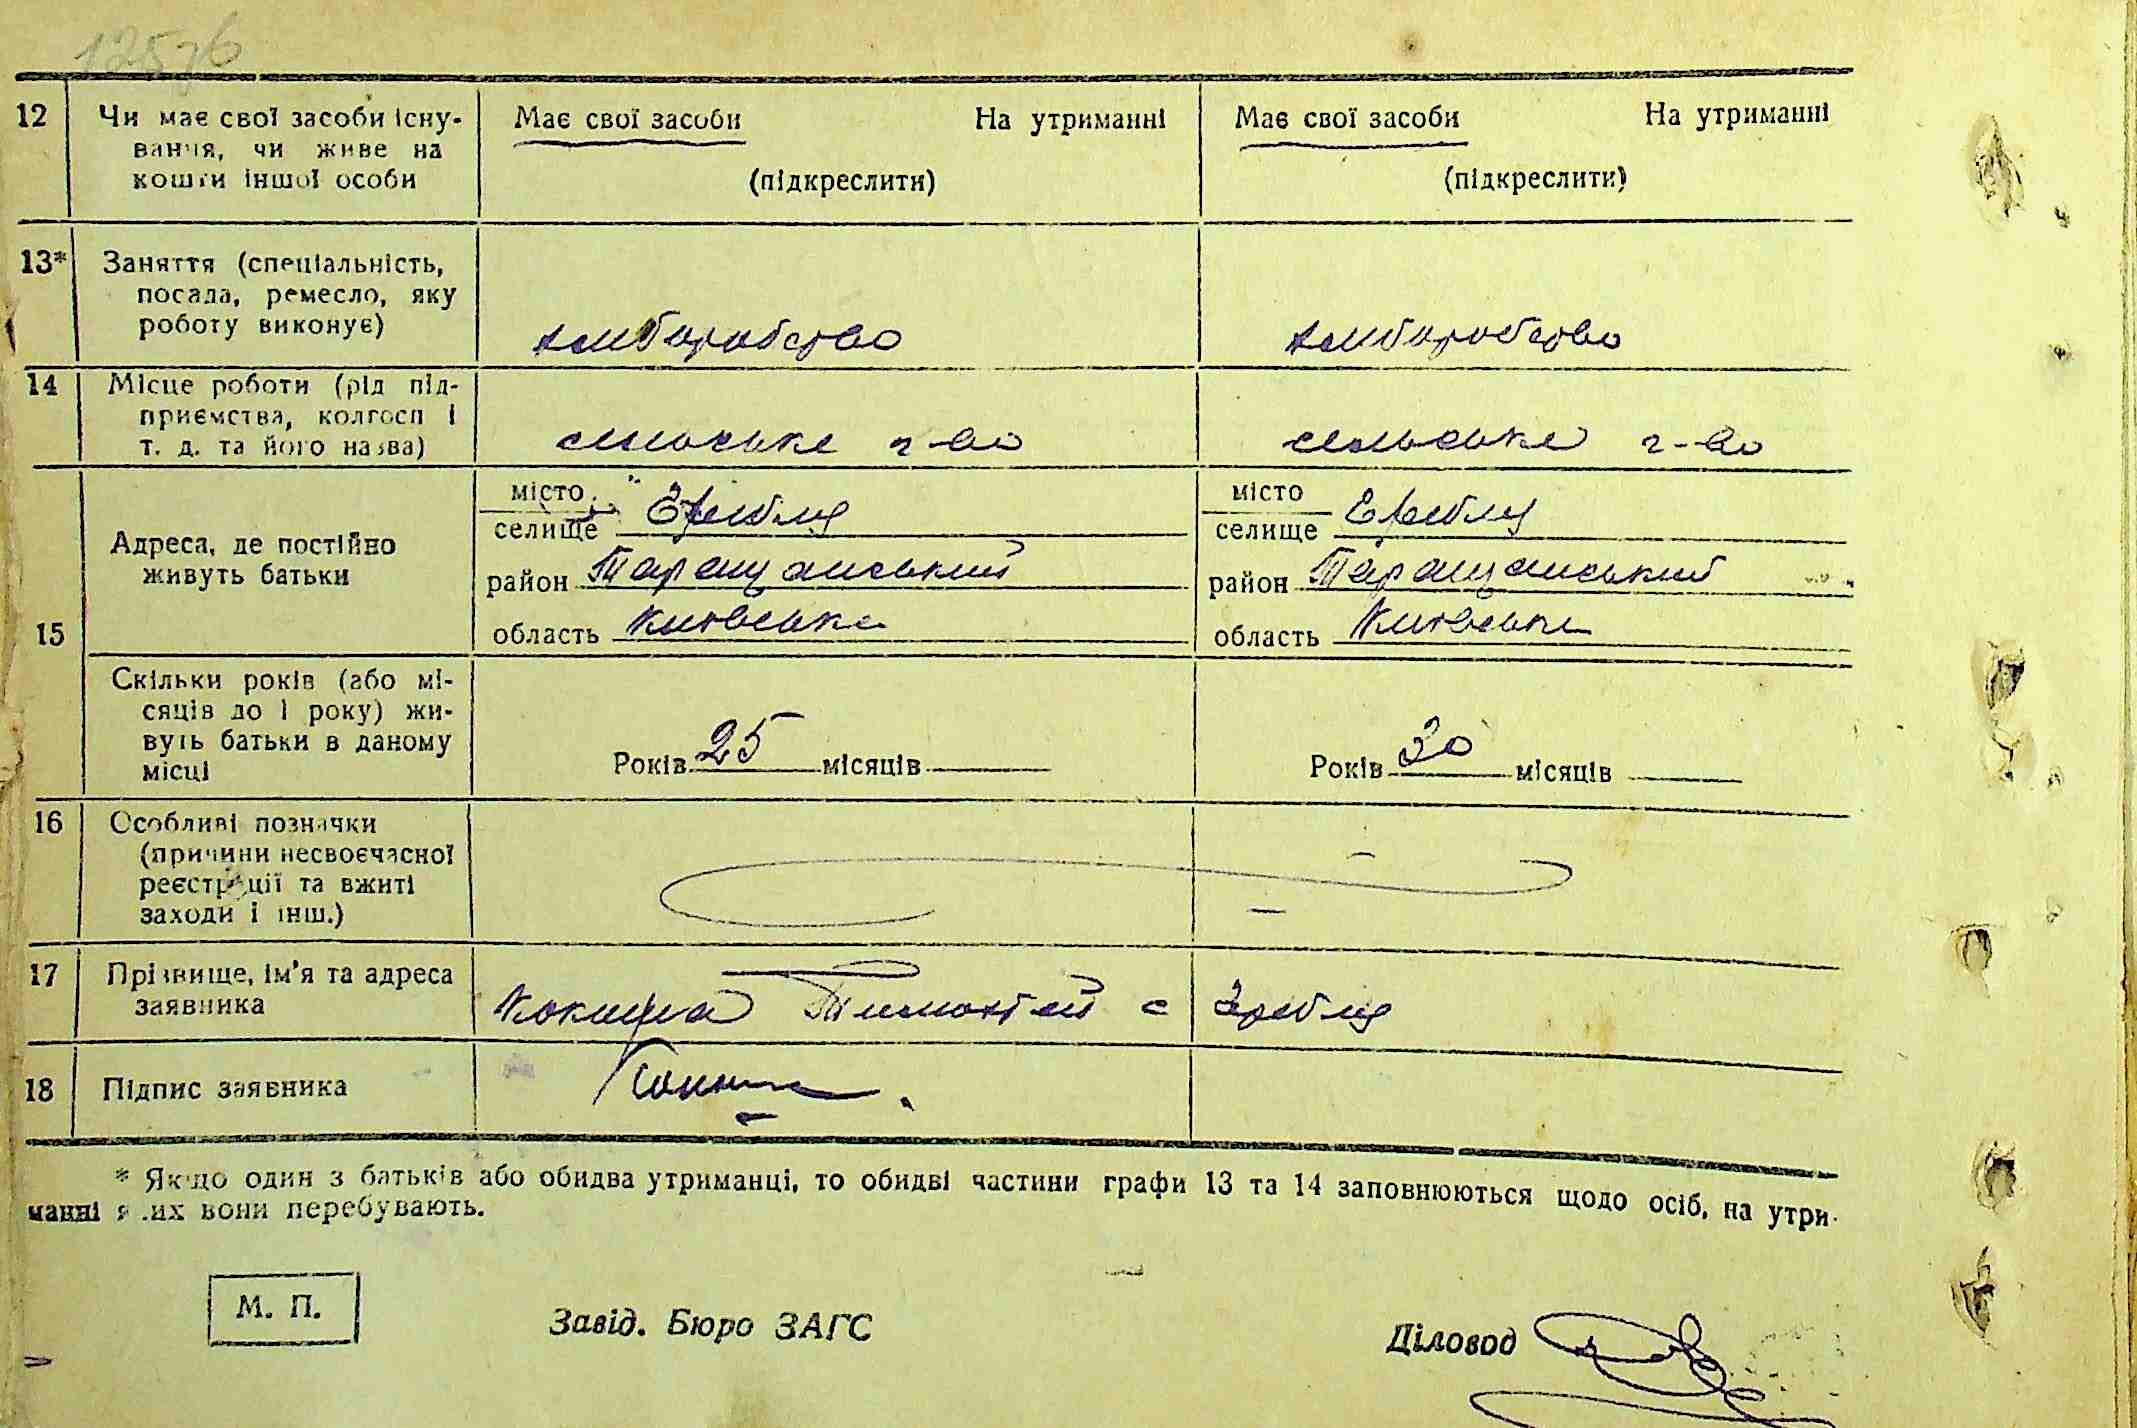 12576
12 Чи має свої засоби існу- Має свої засоби На утриманні Має свої засоби На утриманні
вання, чи живе на
кошти іншої особи (підкреслити) (підкреслити)
13* Заняття (спеціальність,
посада, ремесло, яку
роботу виконує) хліборобство хліборобство
14 Місце роботи (рід під-
приємства, колгосп і
т. д. та його назва) сільське г-во сільське г-во
15 Адреса, де постійно
живуть батьки
місто місто
селище селище
район Таращанський район Таращанський
область Київська область Київська
Скільки років (або мі-
сяців до 1 року) жи-
вуть батьки в даному
місці
Років 25 місяців Років 30 місяців
16 Особливі позначки
(причини несвоєчасної
реєстрації та вжиті
заходи і інш.)
17 Прізвище, ім'я та адреса
заявника Тимофей с
18 Підпис заявника
* Якщо один з батьків або обидва утриманці, то обидві частини графи 13 та 14 заповнюються щодо осіб, на утри-
манні яких вони перебувають.
М. П.
Завід. Бюро ЗАГС
Діловод